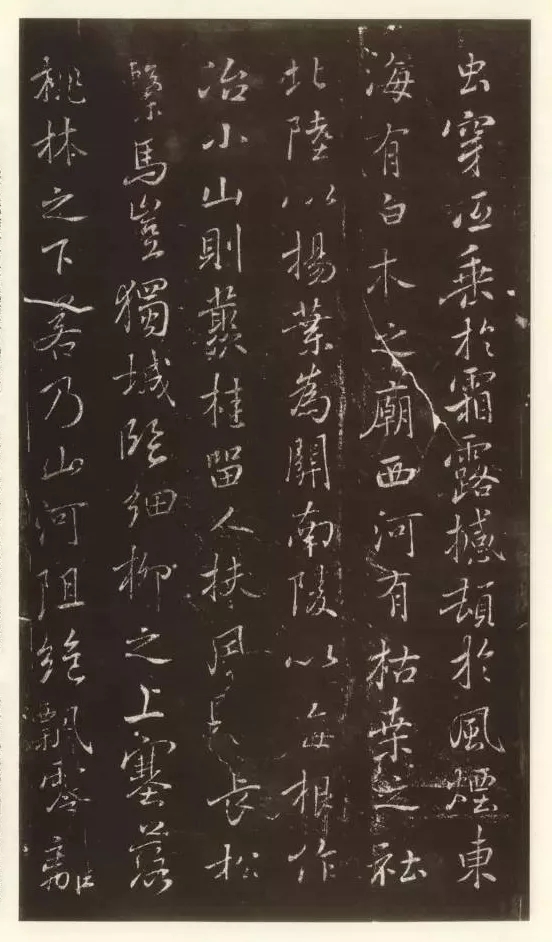 虫穿低垂於霜露撼頓於風煙東
海有白木之廟西河有枯桒之社
北陸以楊葉為關南陵以每根作
冶小山則叢桂留人扶風長松
繫馬豈獨城臨細柳之上塞落
桃林之下若乃山河阻絕飄零離